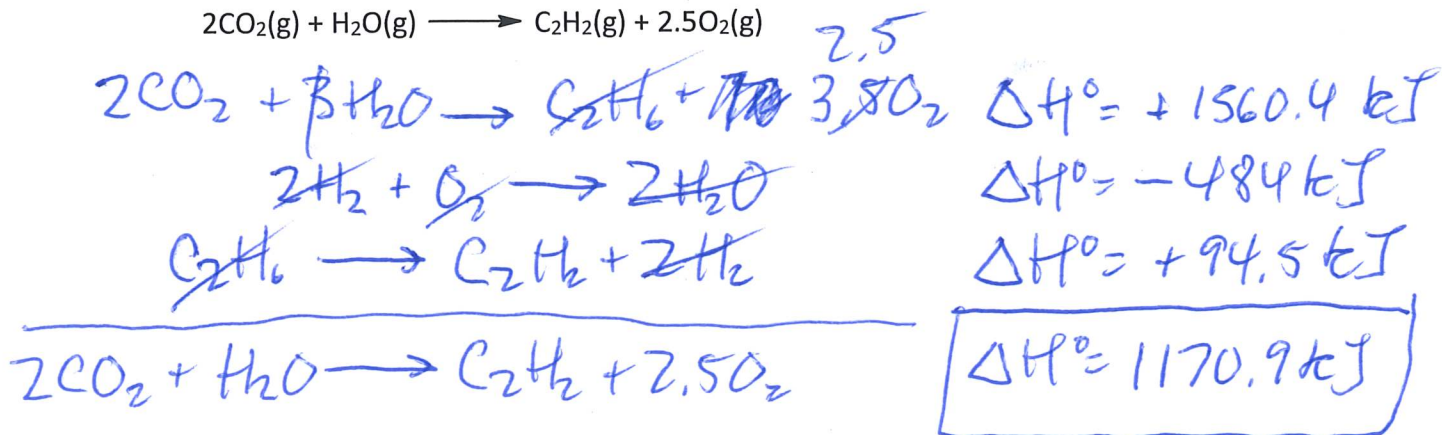 2CO₂(g) + H₂O(g) ⟶ C₂H₂(g) + 2.5O₂(g)
2.5
2CO₂ + 3H₂O ⟶ C₂H₆ + 3.5O₂ ΔH° = +1560.4 kJ
2H₂ + O₂ ⟶ 2H₂O ΔH° = -484 kJ
C₂H₆ ⟶ C₂H₂ + 2H₂ ΔH° = +94.5 kJ
2CO₂ + H₂O ⟶ C₂H₂ + 2.5O₂ ΔH° = 1170.9 kJ